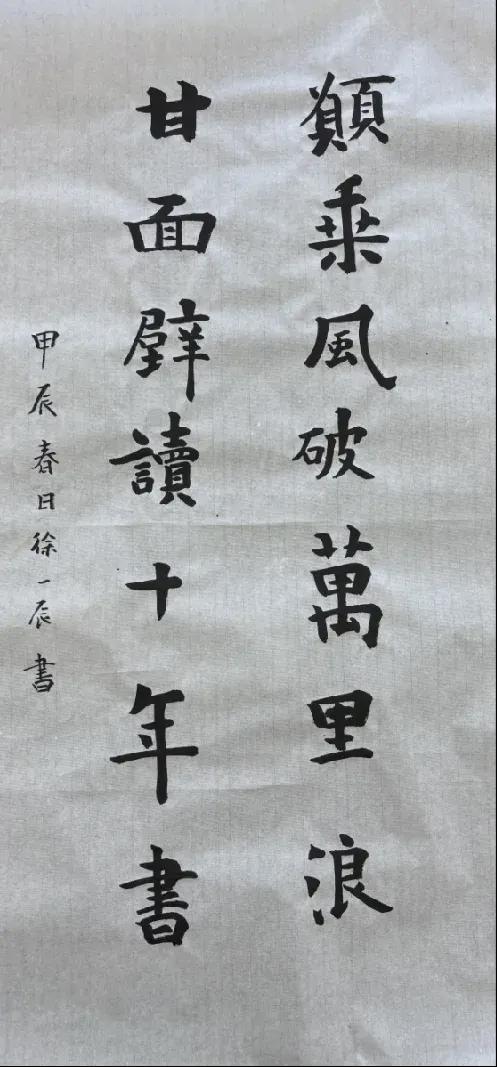 願乘風破萬里浪
甘面壁讀十年書
甲辰春日徐一辰書